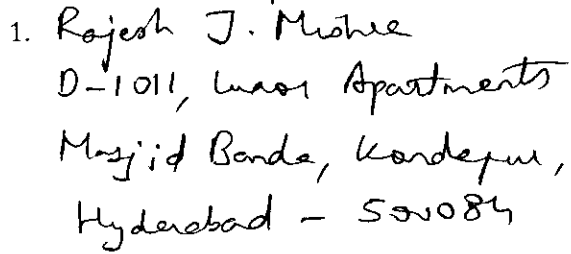 1. Rajesh J. Mishra
D-1011, Luxor Apartments
Masjid Banda, Kondapur,
Hyderabad - 500084